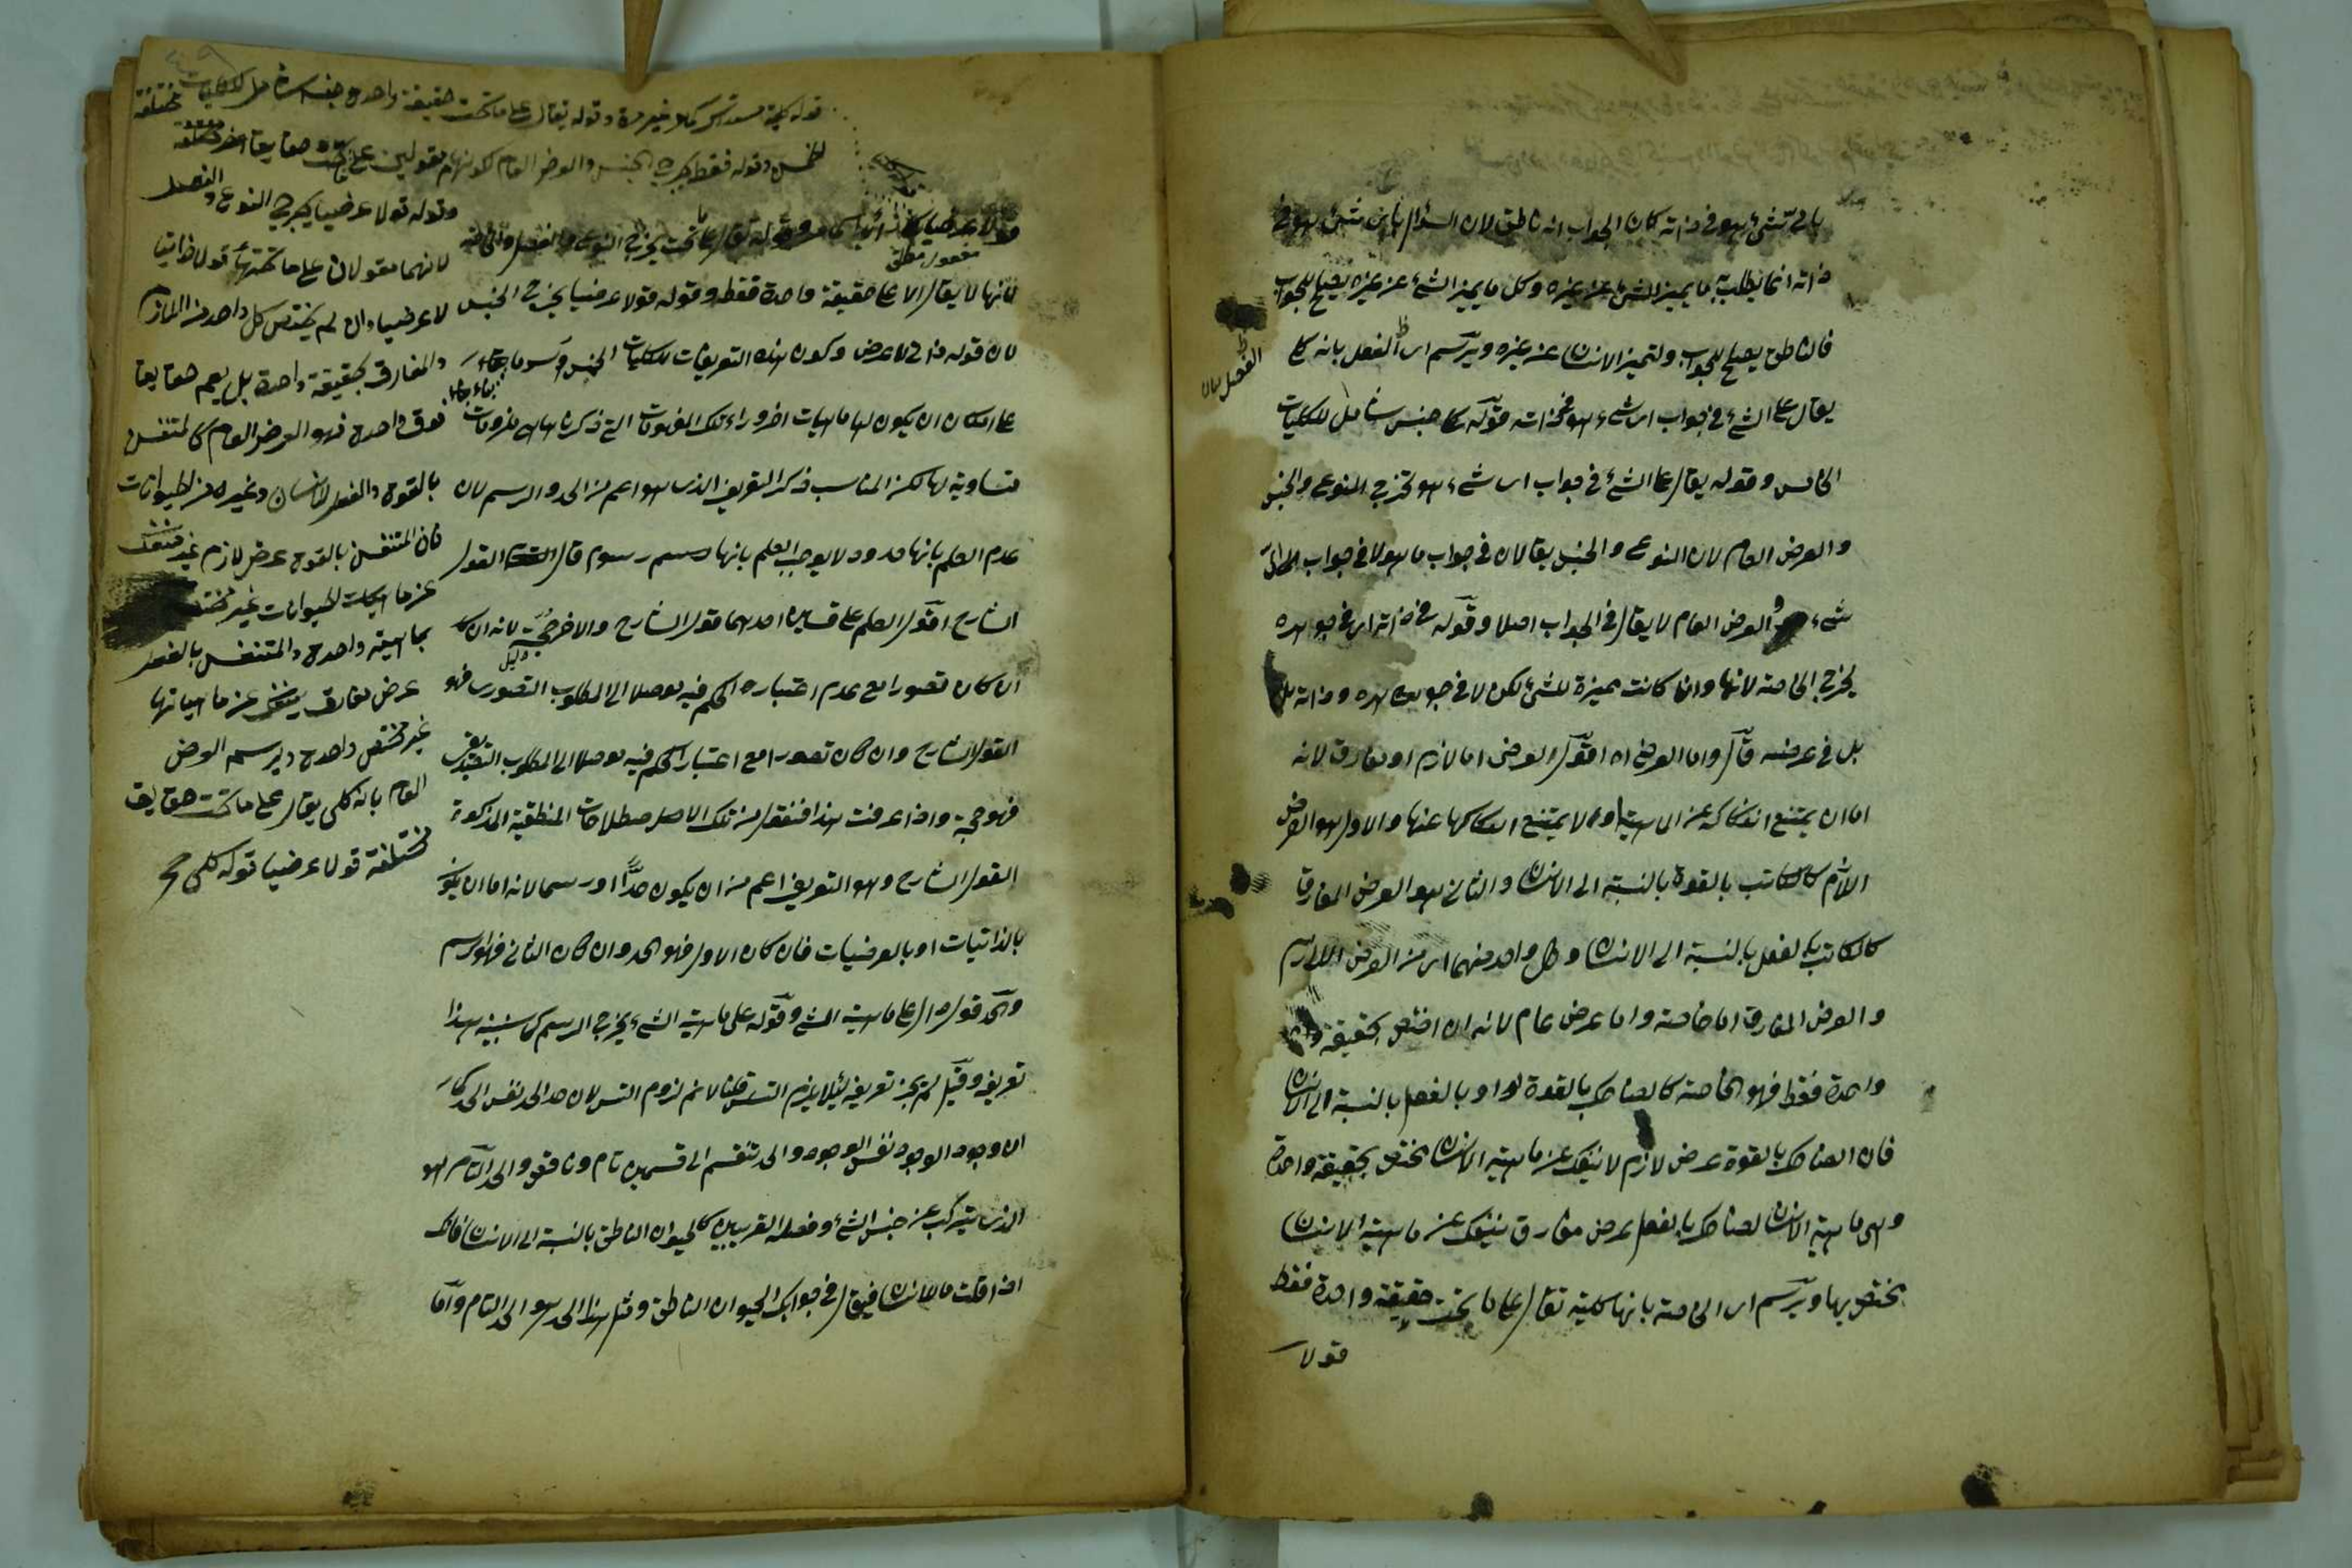 باى شىء هو فى ذاته كان الجواب انه ناطق لان السؤال باى شىء هو فى
ذاته انما يطلب به ما يميز الشىء عن غيره وكل ما يميز الشىء عن غيره يصلح للجواب
فالناطق يصلح للجواب ولتميز الانسان عن غيره ويرسم اى الفصل بانه كلى
يقال على الشىء فى جواب اى شىء هو فى ذاته قوله كلى جنس شامل للكليات
الخمس وقوله يقال على الشىء فى جواب اى شىء هو تخرج النوع والجنس
والعرض العام لان النوع والجنس يقالان فى جواب ما هو لا فى جواب اى
شىء والعرض العام لا يقال فى الجواب اصلا وقوله فى ذاته اى فى جوهره
يخرج الخاصة لانها وان كانت مميزة للشىء لكن لا فى جوهره وذاته بل
بل فى عرضه قال واما العرضى اه اقول العرضى اما لازم او مفارق لانه
اما ان يمتنع انفكاكه عن الماهية او لا يمتنع انفكاكها عنها والاول هو العرض
اللازم كالكاتب بالقوة بالنسبة الى الانسان والثانى هو العرض المفارق
كالكاتب بالفعل بالنسبة الى الانسان وكل واحد منهما اى من العرض اللازم
والعرض المفارق اما خاصة واما عرض عام لانه ان اختص بحقيقة
واحدة فقط فهو الخاصة كالضاحك بالقوة او بالفعل بالنسبة الى الانسان
فان الضاحك بالقوة عرض لازم لا ينفك عن ماهية الانسان مختص بحقيقة واحدة
وهى ماهية الانسان الضاحك بالفعل عرض مفارق ينفك عن ماهية الانسان
مختص بها ويرسم اى الخاصة بانها كلية تقال على ما تحت حقيقة واحدة فقط
قولا
الفصل
قولا عرضيا وقوله تقال على ما تحت يخرج النوع والفصل
مفعول مطلق
لانها لا يقال الا على حقيقة واحدة فقط وقوله قولا عرضيا يخرج الجنس
لان قوله ذاتى لا عرضى وكون هذه التعريفات للكليات الخمس رسوما بناء
على امكان ان يكون لها ماهيات اخر وراء تلك المفهومات التى ذكرناها ملزومات
متساوية لها لكن المناسب ذكر التعريف الذى هو اعم من الحد والرسم لان
عدم العلم بانها حدود لا يوجب العلم بانها رسوم قال القول
الشارح اقول العلم على قسمين احدهما قول الشارح والاخر حجة لانه
دليل
ان كان تصورا مع عدم اعتبار الحكم فيه موصلا الى المطلوب التصورى فهو
القول الشارح وان كان تصورا مع اعتبار الحكم فيه موصلا الى المطلوب التصديقى
فهو حجة واذا عرفت هذا فنقول من تلك الاصطلاحات المنطقية المذكورة
القول الشارح وهو التعريف اعم من ان يكون حدا او رسما لانه اما ان يكون
بالذاتيات او بالعرضيات فان كان الاول فهو الحد وان كان الثانى فهو الرسم
والحد قول دال على ماهية الشىء وقوله على ماهية الشىء يخرج الرسم كما سنبينه هذا
تعريفه وقيل لم يجز تعريفه لئلا يلزم التسلسل قلنا لا نم لزوم التس لان حد الحد نفس الحد كما
ان وجود الوجود نفس الوجود والحد تنقسم الى قسمين تام وناقص والحد التام هو
الذى يتركب عن جنس الشىء وفصله القريبين كالحيوان الناطق بالنسبة الى الانسان فانك
اذا قلت ما الانسان فيقال فى جوابك الحيوان الناطق ومثل هذا الحد هو الحد التام واما
قوله كلية مستدرك كما غير مرة وقوله يقال على ما تحت حقيقة واحدة جنس شامل للكليات
الخمس وقوله فقط يخرج الجنس والعرض العام لكونهما مقولين على ما تحت حقايق مختلفة
وقوله قولا عرضيا يخرج النوع والفصل
لانهما مقولان على ما تحتهما قولا ذاتيا
لا عرضيا وان لم يختص كل واحد من اللازم
والمفارق بحقيقة واحدة بل يعم حقايق
فوق واحدة فهو العرض العام كالمتنفس
بالقوة والفعل للانسان وغيره من الحيوانات
فان المتنفس بالقوة عرض لازم غير منفك
عن ماهيات الحيوانات غير مختص
بماهية واحدة والمتنفس بالفعل
عرض مفارق ينفك عن ماهياتها
غير مختص واحدة ويرسم العرض
العام بانه كلى يقال على ما تحت حقايق
مختلفة قولا عرضيا قوله كلى